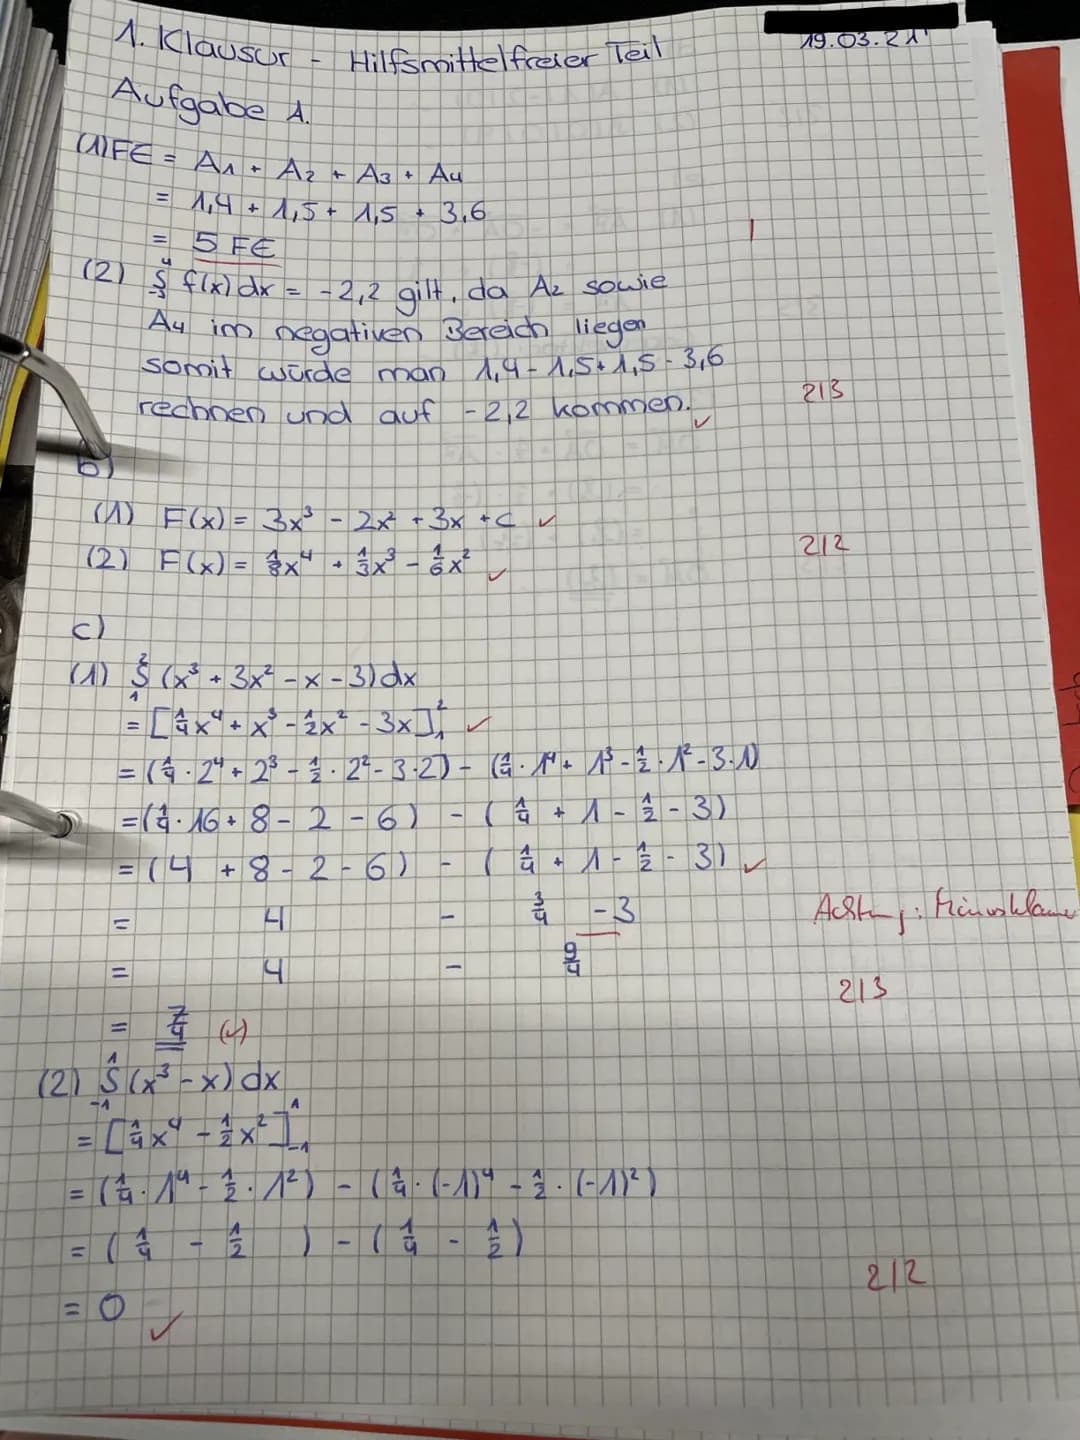 19.03.21
1. Klausur - Hilfsmittelfreier Teil
Aufgabe 1.
(1) FE = A1 + A2 + A3 + A4
= 1,4 + 1,5 + 1,5 + 3,6
= 5 FE
(2) ∫₋₃⁴ f(x) dx = -2,2 gilt, da A2 sowie
A4 im negativen Bereich liegen
somit würde man 1,4 - 1,5 + 1,5 - 3,6
rechnen und auf -2,2 kommen. ✓
2/3
b)
(1) F(x) = 3x³ - 2x² + 3x + c ✓
(2) F(x) = 1/8x⁴ + 1/3x³ - 1/6x² ✓
2/2
c)
(1) ∫₁² (x³ + 3x² - x - 3) dx
= [1/4x⁴ + x³ - 1/2x² - 3x]₁² ✓
= (1/4 · 2⁴ + 2³ - 1/2 · 2² - 3·2) - (1/4 · 1⁴ + 1³ - 1/2 · 1² - 3·1)
= (1/4 · 16 + 8 - 2 - 6) - (1/4 + 1 - 1/2 - 3)
= (4 + 8 - 2 - 6) - (1/4 + 1 - 1/2 - 3) ✓
= 4 - 3/4 - 3 Achtung: Minusklammer
= 4 - 9/4
2/3
= 7/4 (✓)
(2) ∫₋₁¹ (x³ - x) dx
= [1/4x⁴ - 1/2x²]₋₁¹
= (1/4 · 1⁴ - 1/2 · 1²) - (1/4 · (-1)⁴ - 1/2 · (-1)²)
= (1/4 - 1/2) - (1/4 - 1/2)
2/2
= 0 ✓